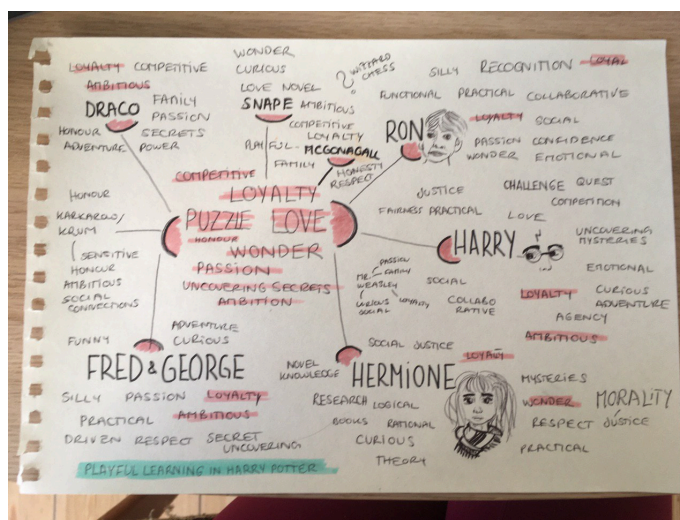 LOYALTY COMPETITIVE
AMBITIOUS
DRACO
FAMILY
PASSION
SECRETS
POWER
HONOUR
ADVENTURE
WONDER
CURIOUS
LOVE NOVEL
SNAPE AMBITIOUS
COMPETITIVE
LOYALTY
PLAYFUL-
MCGONAGALL
FAMILY
HONESTY
RESPECT
? WIZZARD
CHESS
SILLY RECOGNITION LOYAL
FUNCTIONAL PRACTICAL COLLABORATIVE
RON
LOYALTY SOCIAL
PASSION CONFIDENCE
WONDER EMOTIONAL
COMPETITIVE
LOYALTY
PUZZLE LOVE
HONOUR
WONDER
PASSION
UNCOVERING SECRETS
AMBITION
HONOUR
KARKAROW/
KRUM
SENSITIVE
HONOUR
AMBITIOUS
SOCIAL
CONNECTIONS
JUSTICE
FAIRNESS PRACTICAL
CHALLENGE QUEST
COMPETITION
LOVE
HARRY
UNCOVERING
MYSTERIES
EMOTIONAL
LOYALTY CURIOUS
ADVENTURE
AGENCY
AMBITIOUS
SOCIAL
COLLABO
RATIVE
PASSION
FAMILY
MR
WEASLEY
CURIOUS
SOCIAL
LOYALTY
FUNNY
ADVENTURE
CURIOUS
FRED & GEORGE
SILLY PASSION LOYALTY
PRACTICAL AMBITIOUS
DRIVEN RESPECT SECRET
UNCOVERING
SOCIAL JUSTICE
LOYALTY
NOVEL
KNOWLEDGE
HERMIONE
RESEARCH LOGICAL
BOOKS RATIONAL
CURIOUS
THEORY
MYSTERIES
WONDER MORALITY
RESPECT JUSTICE
PRACTICAL
PLAYFUL LEARNING IN HARRY POTTER